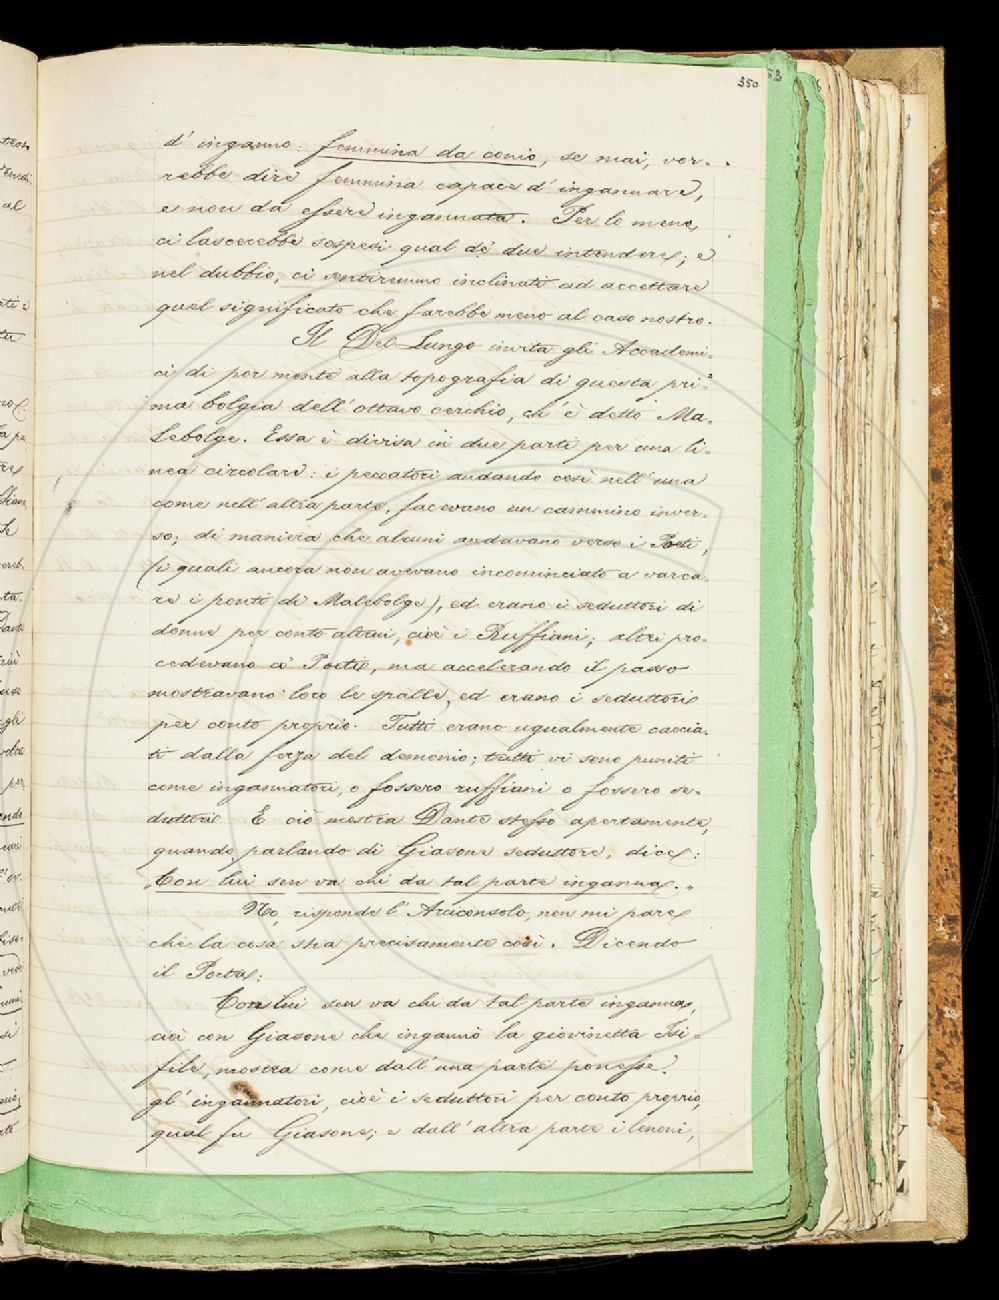 350
d' inganno: femmina da conio, se mai, vor-
rebbe dire femmina capace d' ingannare,
e non da essere ingannata. Per lo meno,
ci lascerebbe sospesi qual de' due intendere; e
nel dubbio, ci sentiremmo inclinati ad accettare
quel significato che farebbe meno al caso nostro.
Il Del Lungo invita gli Accademi-
ci di por mente alla topografia di questa pri-
ma bolgia dell' ottavo cerchio, ch' è detto Ma-
lebolge. Essa è divisa in due parti per una li-
nea circolare: i peccatori andando così nell' una
come nell' altra parte, facevano un cammino inver-
so; di maniera che alcuni andavano verso i Poeti,
(i quali ancora non avevano incominciato a varca-
re i ponti di Malebolge), ed erano i seduttori di
donne per conto altrui, cioè i Ruffiani; altri pro-
cedevano co' Poeti, ma accelerando il passo
mostravano loro le spalle, ed erano i seduttori
per conto proprio. Tutti erano ugualmente caccia-
ti dalla ferza del demonio; tutti vi sono puniti
come ingannatori, o fossero ruffiani o fossero se-
duttori. E ciò mostra Dante stesso apertamente,
quando, parlando di Giasone seduttore, dice:
"Con lui sen va chi da tal parte inganna."
No, risponde l' Arciconsolo, non mi pare
che la cosa stia precisamente così. Dicendo
il Poeta:
Con lui sen va chi da tal parte inganna,
cioè con Giasone che ingannò la giovinetta Isi-
file, mostra come dall' una parte ponesse
gl' ingannatori, cioè i seduttori per conto proprio,
qual fu Giasone; e dall' altra parte i lenoni,